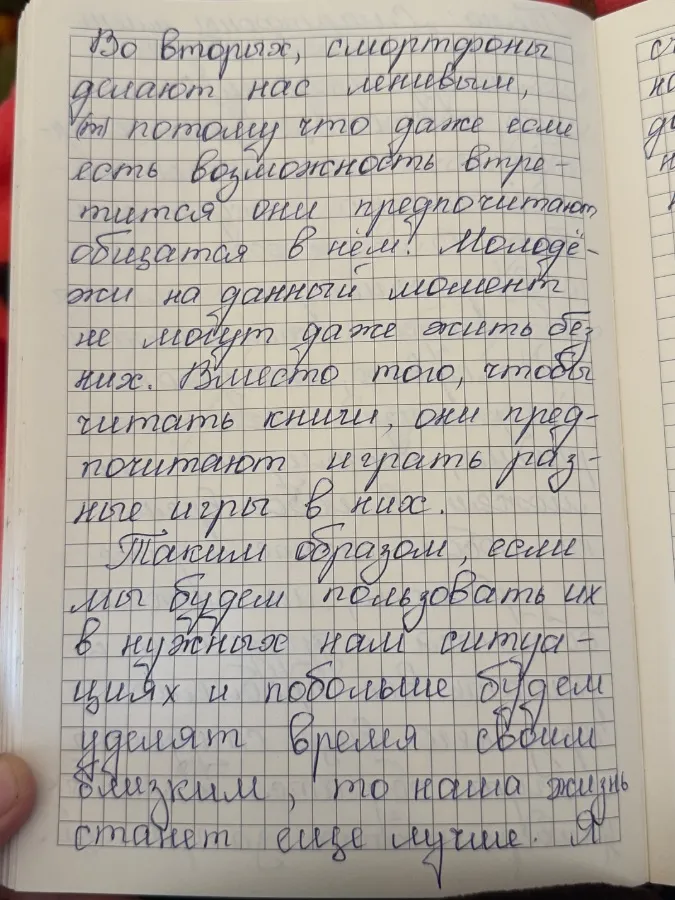 Во вторых, смортфоны
делают нас ленивым,
(т) потому что даже если
есть возможность втре-
тится они предпочитают
обищатся в нём. Молодё-
жи на данный момент
не могут даже жить без
них. Вместо того, чтобы
читать книги, они пред-
почитают играть раз-
ные игры в них.
Таким образом, если
мы будем пользовать их
в нужных нам ситуа-
циях и побольше будем
уделят время своим
близким, то наша жизнь
станет еще лучше. Я